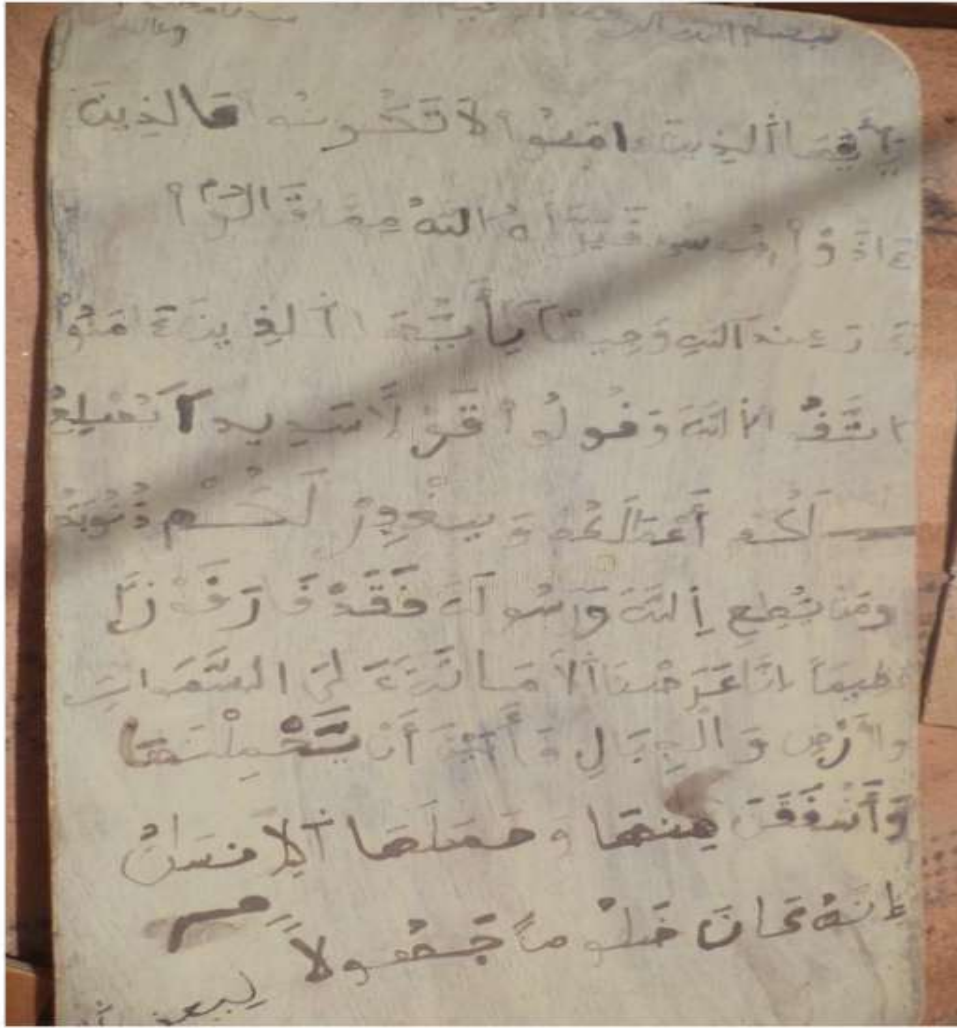 بسم الله الرحمن الرحيم
يأيها الذين ءامنوا لا تكونوا كالذين
ءاذوا موسى فبرأه الله مما قالوا
عند الله وجيها يأيها الذين ءامنوا
اتقوا الله وقولوا قولا سديدا يصلح
لكم أعمالكم ويغفر لكم ذنوبكم
ومن يطع الله ورسوله فقد فاز فوزا
عظيما انا عرضنا الأمانة على السموات
والأرض والجبال فأبين أن يحملنها
وأشفقن منها وحملها الإنسان
إنه كان ظلوما جهولا